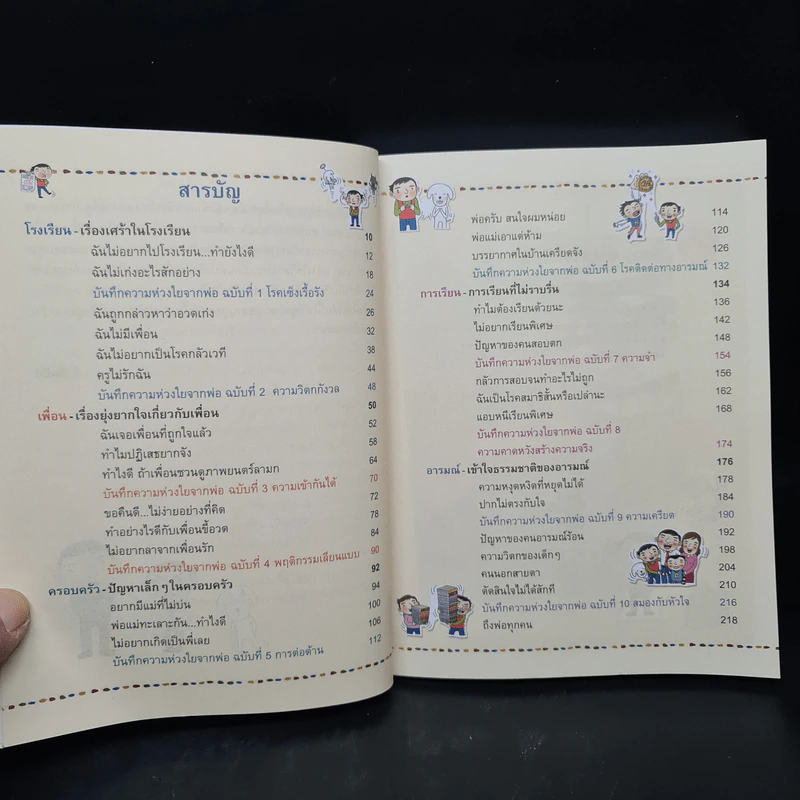 สารบัญ
โรงเรียน - เรื่องเศร้าในโรงเรียน 10
ฉันไม่อยากไปโรงเรียน...ทำยังไงดี 12
ฉันไม่เก่งอะไรสักอย่าง 18
บันทึกความห่วงใยจากพ่อ ฉบับที่ 1 โรคเซ็งเรื้อรัง 24
ฉันถูกกล่าวหาว่าอวดเก่ง 26
ฉันไม่มีเพื่อน 32
ฉันไม่อยากเป็นโรคกลัวเวที 38
ครูไม่รักฉัน 44
บันทึกความห่วงใยจากพ่อ ฉบับที่ 2 ความวิตกกังวล 48
เพื่อน - เรื่องยุ่งยากใจเกี่ยวกับเพื่อน 50
ฉันเจอเพื่อนที่ถูกใจแล้ว 52
ทำไมปฏิเสธยากจัง 58
ทำไงดี ถ้าเพื่อนชวนดูภาพยนตร์ลามก 64
บันทึกความห่วงใยจากพ่อ ฉบับที่ 3 ความเข้ากันได้ 70
ขอคืนดี...ไม่ง่ายอย่างที่คิด 72
ทำอย่างไรดีกับเพื่อนขี้อวด 78
ไม่อยากลาจากเพื่อนรัก 84
บันทึกความห่วงใยจากพ่อ ฉบับที่ 4 พฤติกรรมเลียนแบบ 90
ครอบครัว - ปัญหาเล็กๆ ในครอบครัว 92
อยากมีแม่ที่ไม่บ่น 94
พ่อแม่ทะเลาะกัน...ทำไงดี 100
ไม่อยากเกิดเป็นพี่เลย 106
บันทึกความห่วงใยจากพ่อ ฉบับที่ 5 การต่อต้าน 112
พ่อครับ สนใจผมหน่อย 114
พ่อแม่เอาแต่ห้าม 120
บรรยากาศในบ้านเครียดจัง 126
บันทึกความห่วงใยจากพ่อ ฉบับที่ 6 โรคติดต่อทางอารมณ์ 132
การเรียน - การเรียนที่ไม่ราบรื่น 134
ทำไมต้องเรียนด้วยนะ 136
ไม่อยากเรียนพิเศษ 142
ปัญหาของคนสอบตก 148
บันทึกความห่วงใยจากพ่อ ฉบับที่ 7 ความจำ 154
กลัวการสอบจนทำอะไรไม่ถูก 156
ฉันเป็นโรคสมาธิสั้นหรือเปล่านะ 162
แอบหนีเรียนพิเศษ 168
บันทึกความห่วงใยจากพ่อ ฉบับที่ 8
ความคาดหวังสร้างความจริง 174
อารมณ์ - เข้าใจธรรมชาติของอารมณ์ 176
ความหงุดหงิดที่หยุดไม่ได้ 178
ปากไม่ตรงกับใจ 184
บันทึกความห่วงใยจากพ่อ ฉบับที่ 9 ความเครียด 190
ปัญหาของคนอารมณ์ร้อน 192
ความวิตกของเด็กๆ 198
คนนอกสายตา 204
ตัดสินใจไม่ได้สักที 210
บันทึกความห่วงใยจากพ่อ ฉบับที่ 10 สมองกับหัวใจ 216
ถึงพ่อทุกคน 218